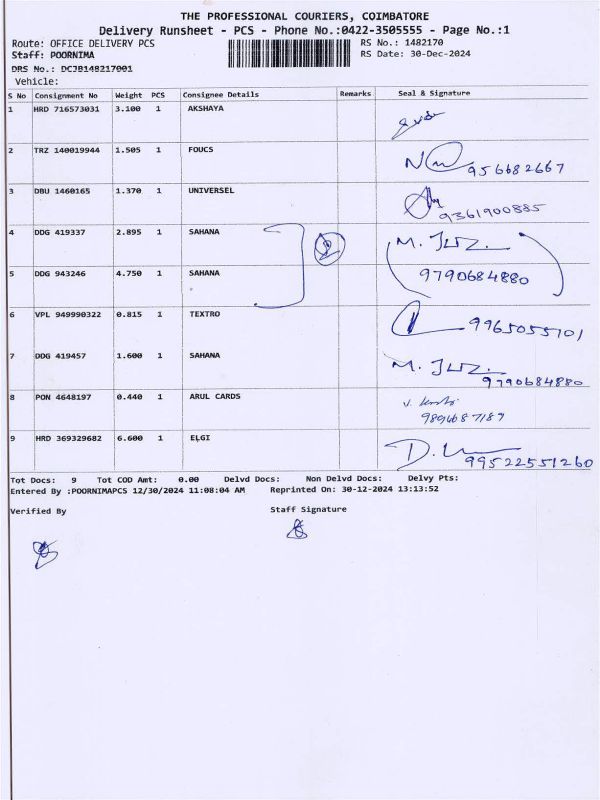 THE PROFESSIONAL COURIERS, COIMBATORE
Delivery Runsheet - PCS - Phone No.:0422-3505555 - Page No.:1
Route: OFFICE DELIVERY PCS RS No.: 1482170
Staff: POORNIMA RS Date: 30-Dec-2024
DRS No.: DCJB148217001
Vehicle:
S No Consignment No Weight PCS Consignee Details Remarks Seal & Signature
1 HRD 716573031 3.100 1 AKSHAYA
2 TRZ 140019944 1.505 1 FOUCS
956682667
3 DBU 1460165 1.370 1 UNIVERSEL
9361900885
4 DDG 419337 2.895 1 SAHANA 2 M.
5 DDG 943246 4.750 1 SAHANA 9790684880
6 VPL 949990322 0.815 1 TEXTRO 9965055701
7 DDG 419457 1.600 1 SAHANA M.
9790684880
8 PON 4648197 0.440 1 ARUL CARDS
9 HRD 369329682 6.600 1 ELGI D.
99522551260
Tot Docs: 9 Tot COD Amt: 0.00 Delvd Docs: Non Delvd Docs: Delvy Pts:
Entered By :POORNIMAPCS 12/30/2024 11:08:04 AM Reprinted On: 30-12-2024 13:13:52
Verified By Staff Signature